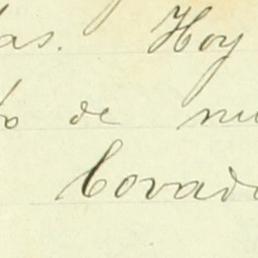 as. Hoy
o de nu
Covado